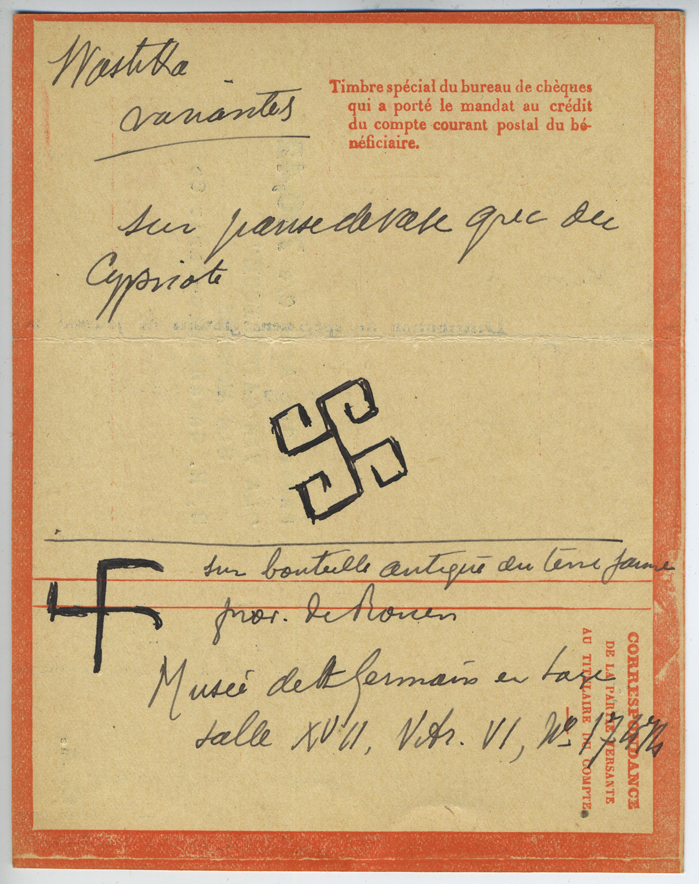 Wastika
variantes
Timbre spécial du bureau de chèques
qui a porté le mandat au crédit
du compte courant postal du bé-
néficiaire.
sur panse de vase grec ou
Cypriote
sur bouteille antique en terre jaune
prov. de Rouen
Musée de St Germain en Laye
salle XVII, Vitr. VI, No
CORRESPONDANCE
DE LA PARTIE VERSANTE
AU TITULAIRE DU COMPTE